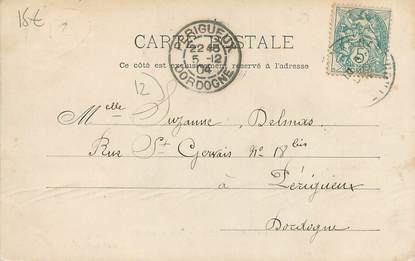 18€
CARTE POSTALE
Ce côté est exclusivement réservé à l'adresse
PÉRIGUEUX
22 45
5 -12
04
DORDOGNE
5
12
Melle Suzanne Delmas
Rue St Gervais No 18 bis
à Périgueux
Dordogne